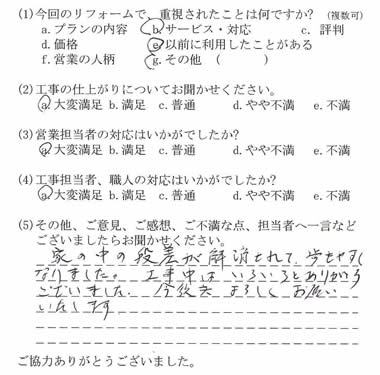 (1)今回のリフォームで、重視されたことは何ですか? (複数可)
a.プランの内容 b.サービス・対応 c. 評判
d.価格 e.以前に利用したことがある
f.営業の人柄 g.その他 ( )
(2)工事の仕上がりについてお聞かせください。
a.大変満足 b.満足 c.普通 d.やや不満 e.不満
(3)営業担当者の対応はいかがでしたか?
a.大変満足 b.満足 c.普通 d.やや不満 e.不満
(4)工事担当者、職人の対応はいかがでしたか?
a.大変満足 b.満足 c.普通 d.やや不満 e.不満
(5)その他、ご意見、ご感想、ご不満な点、担当者へ一言など
ございましたらお聞かせください。
家の中の段差が解消されて、歩きやすく
なりました。工事中はいろいろとありがとう
ございました。今後共よろしくお願い
いたします
ご協力ありがとうございました。